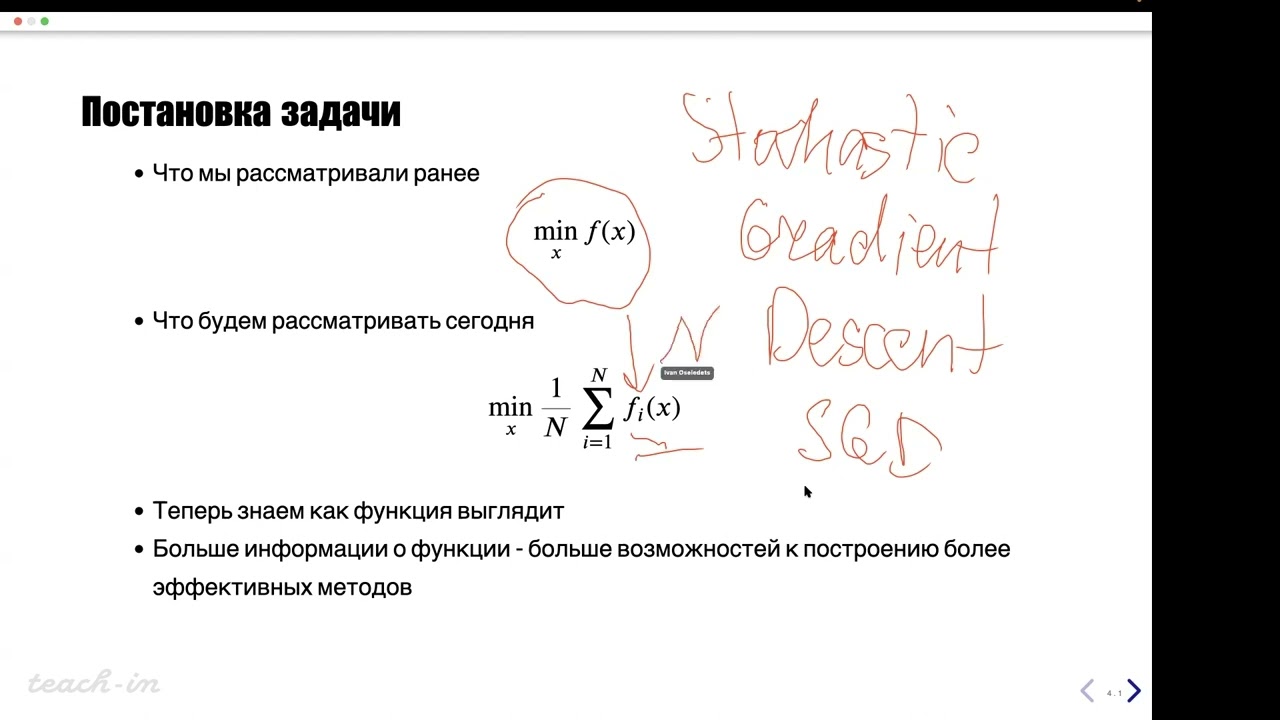 Постановка задачи
• Что мы рассматривали ранее
min f(x)
x
• Что будем рассматривать сегодня
min 1/N ∑ fᵢ(x)
x i=1 N
• Теперь знаем как функция выглядит
• Больше информации о функции - больше возможностей к построению более
эффективных методов
Stohastic
Gradient
Descent
SGD
N
Ivan Oseledets
teach-in
4.1